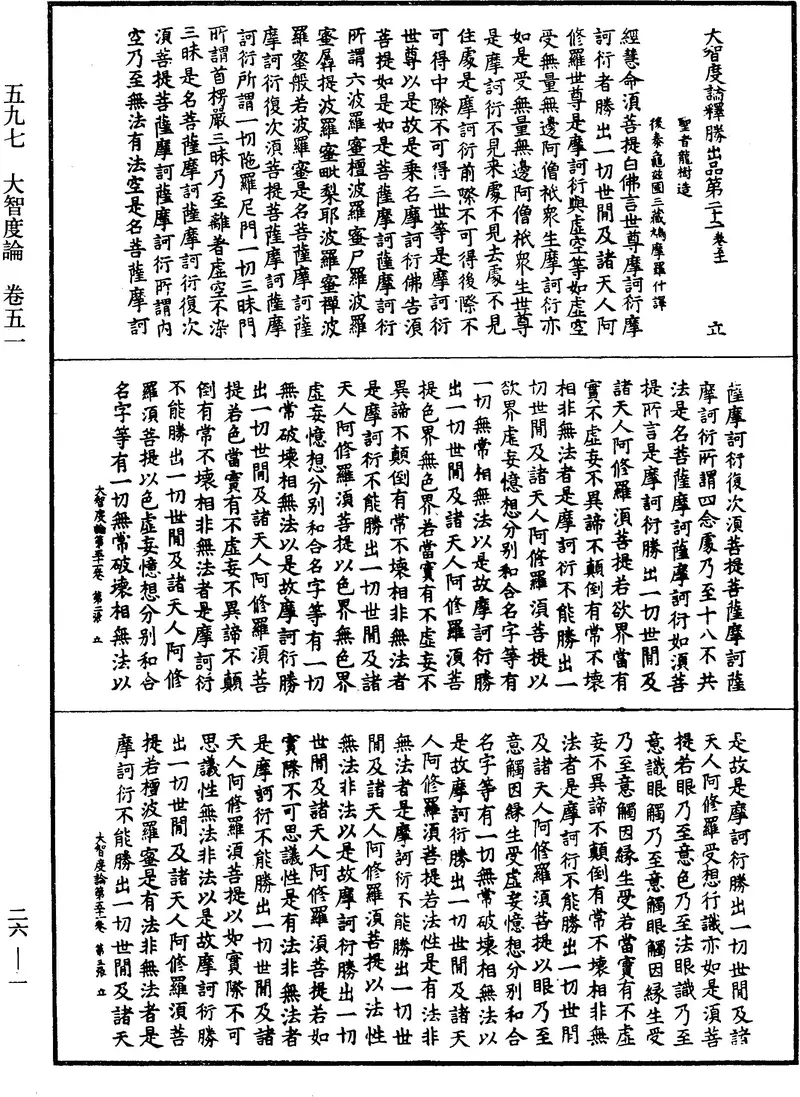 大智度論釋勝出品第二十二 卷五十一 立
聖者龍樹造
後秦龜茲國三藏鳩摩羅什譯
經慧命須菩提白佛言世尊摩訶衍摩
訶衍者勝出一切世間及諸天人阿
修羅世尊是摩訶衍與虛空等如虛空
受無量無邊阿僧祇衆生摩訶衍亦
如是受無量無邊阿僧祇衆生世尊
是摩訶衍不見來處不見去處不見
住處是摩訶衍前際不可得後際不
可得中際不可得三世等是摩訶衍
世尊以是故是乘名摩訶衍佛告須
菩提如是如是菩薩摩訶薩摩訶衍
所謂六波羅蜜檀波羅蜜尸羅波羅
蜜羼提波羅蜜毗梨耶波羅蜜禪波
羅蜜般若波羅蜜是名菩薩摩訶薩
摩訶衍復次須菩提菩薩摩訶薩摩
訶衍所謂一切陁羅尼門一切三昧門
所謂首楞嚴三昧乃至離著虛空不染
三昧是名菩薩摩訶薩摩訶衍復次
須菩提菩薩摩訶薩摩訶衍所謂內
空乃至無法有法空是名菩薩摩訶
薩摩訶衍復次須菩提菩薩摩訶薩
摩訶衍所謂四念處乃至十八不共
法是名菩薩摩訶薩摩訶衍如須菩
提所言是摩訶衍勝出一切世間及
諸天人阿修羅須菩提若欲界當有
實不虛妄不異諦不顛倒有常不壞
相非無法者是摩訶衍不能勝出一
切世間及諸天人阿修羅須菩提以
欲界虛妄憶想分別和合名字等有
一切無常相無法以是故摩訶衍勝
出一切世間及諸天人阿修羅須菩
提色界無色界若當實有不虛妄不
異諦不顛倒有常不壞相非無法者
是摩訶衍不能勝出一切世間及諸
天人阿修羅須菩提以色界無色界
虛妄憶想分別和合名字等有一切
無常破壞相無法以是故摩訶衍勝
出一切世間及諸天人阿修羅須菩
提若色當實有不虛妄不異諦不顛
倒有常不壞相非無法者是摩訶衍
不能勝出一切世間及諸天人阿修
羅須菩提以色虛妄憶想分別和合
名字等有一切無常破壞相無法以
大智度論第五十一卷 第二張 立
是故是摩訶衍勝出一切世間及諸
天人阿修羅受想行識亦如是須菩
提若眼乃至意色乃至法眼識乃至
意識眼觸乃至意觸眼觸因緣生受
乃至意觸因緣生受若當實有不虛
妄不異諦不顛倒有常不壞相非無
法者是摩訶衍不能勝出一切世間
及諸天人阿修羅須菩提以眼乃至
意觸因緣生受虛妄憶想分別和合
名字等有一切無常破壞相無法以
是故摩訶衍勝出一切世間及諸天
人阿修羅須菩提若法性是有法非
無法者是摩訶衍不能勝出一切世
間及諸天人阿修羅須菩提以法性
無法非法以是故摩訶衍勝出一切
世間及諸天人阿修羅須菩提若如
實際不可思議性是有法非無法者
是摩訶衍不能勝出一切世間及諸
天人阿修羅須菩提以如實際不可
思議性無法非法以是故摩訶衍勝
出一切世間及諸天人阿修羅須菩
提若檀波羅蜜是有法非無法者是
摩訶衍不能勝出一切世間及諸天
大智度論第五十一卷 第三張 立
五九七 大智度論 卷五一
二六——一